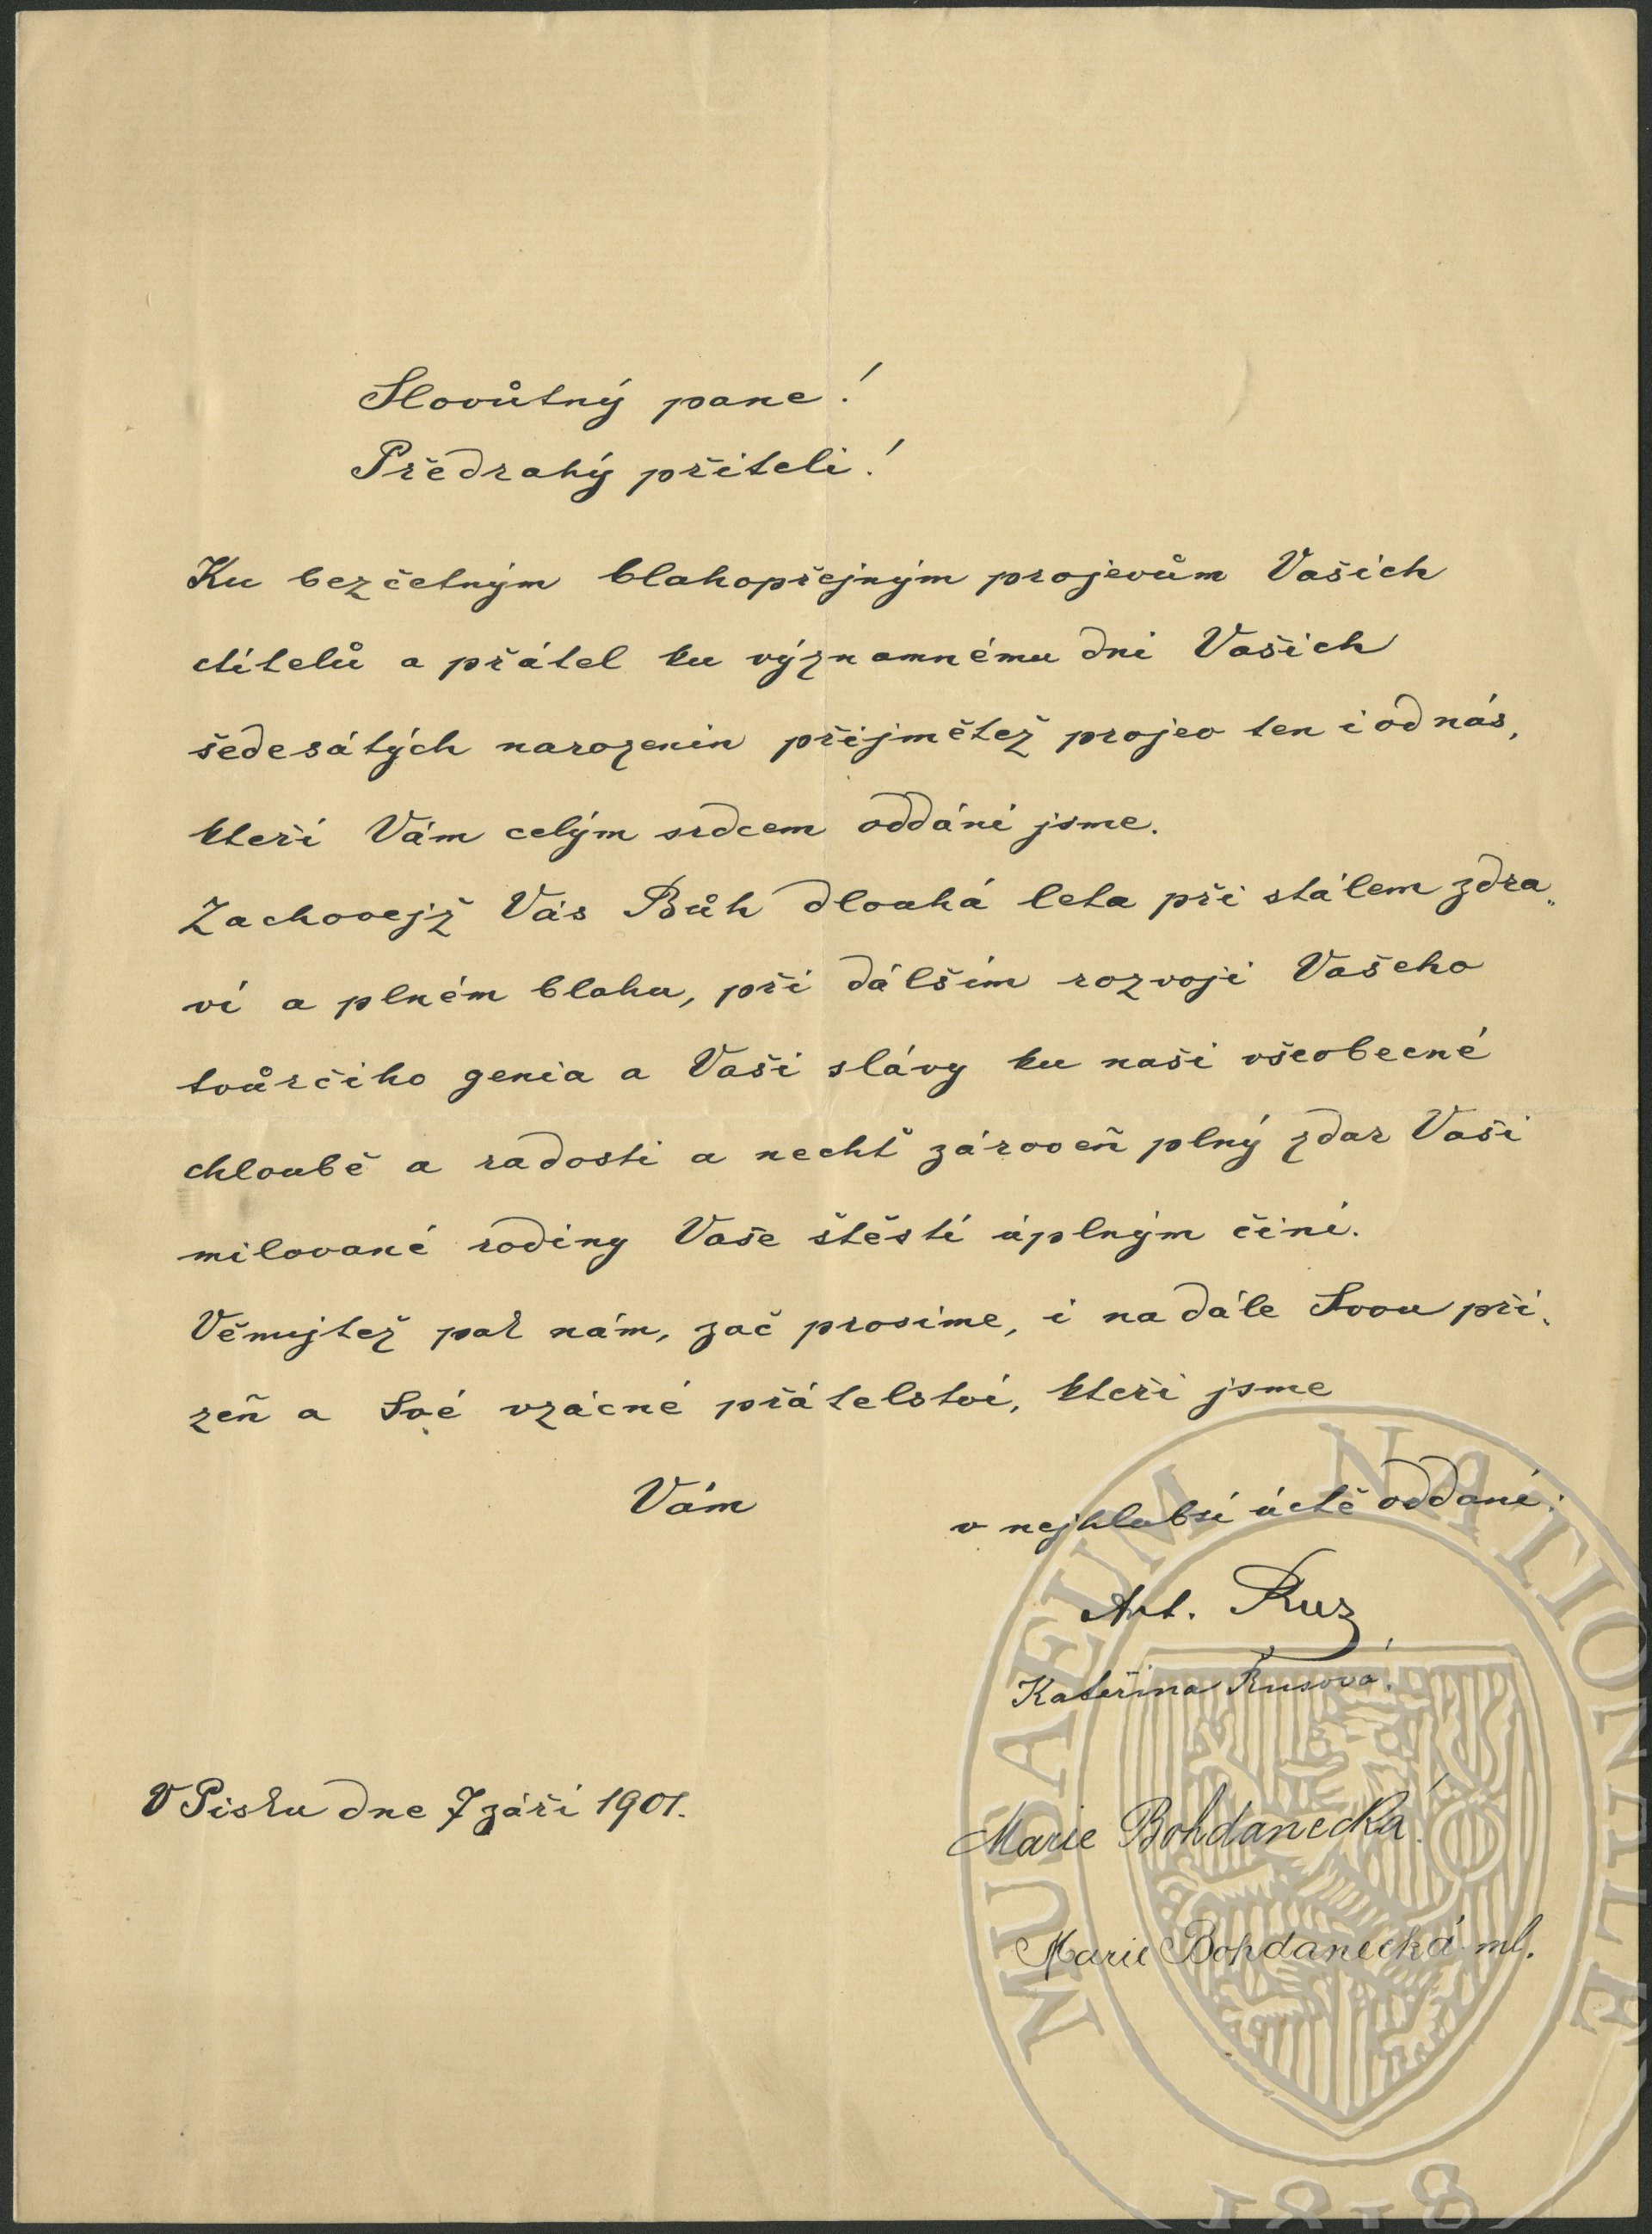 Slovůtný pane!
Předrahý příteli!
Ku bezčetným blahopřejným projevům Vašich
ctitelů a přátel ku významnému dni Vašich
šedesátých narozenin přijmětež projev ten i od nás,
kteří Vám celým srdcem oddáni jsme.
Zachovejž Vás Bůh dlouhá leta při stálem zdra„
ví a plném blahu, při dálším rozvoji Vašeho
tvůrčího genia a Vaší slávy ku naší všeobecné
chloubě a radosti a nechť zároveň plný zdar Vaší
milované rodiny Vaše štěstí úplným činí.
Věnujtež pak nám, zač prosíme, i na dále Svou pří„
zeň a Své vzácné přátelství, kteří jsme
Vám
v nejhlubší úctě oddaní:
Ant. Rus
Kateřina Rusová.
V Písku dne 7 září 1901.
Marie Bohdanecká.
Marie Bohdanecká ml.
MUSAEUM NATIONALE
1818